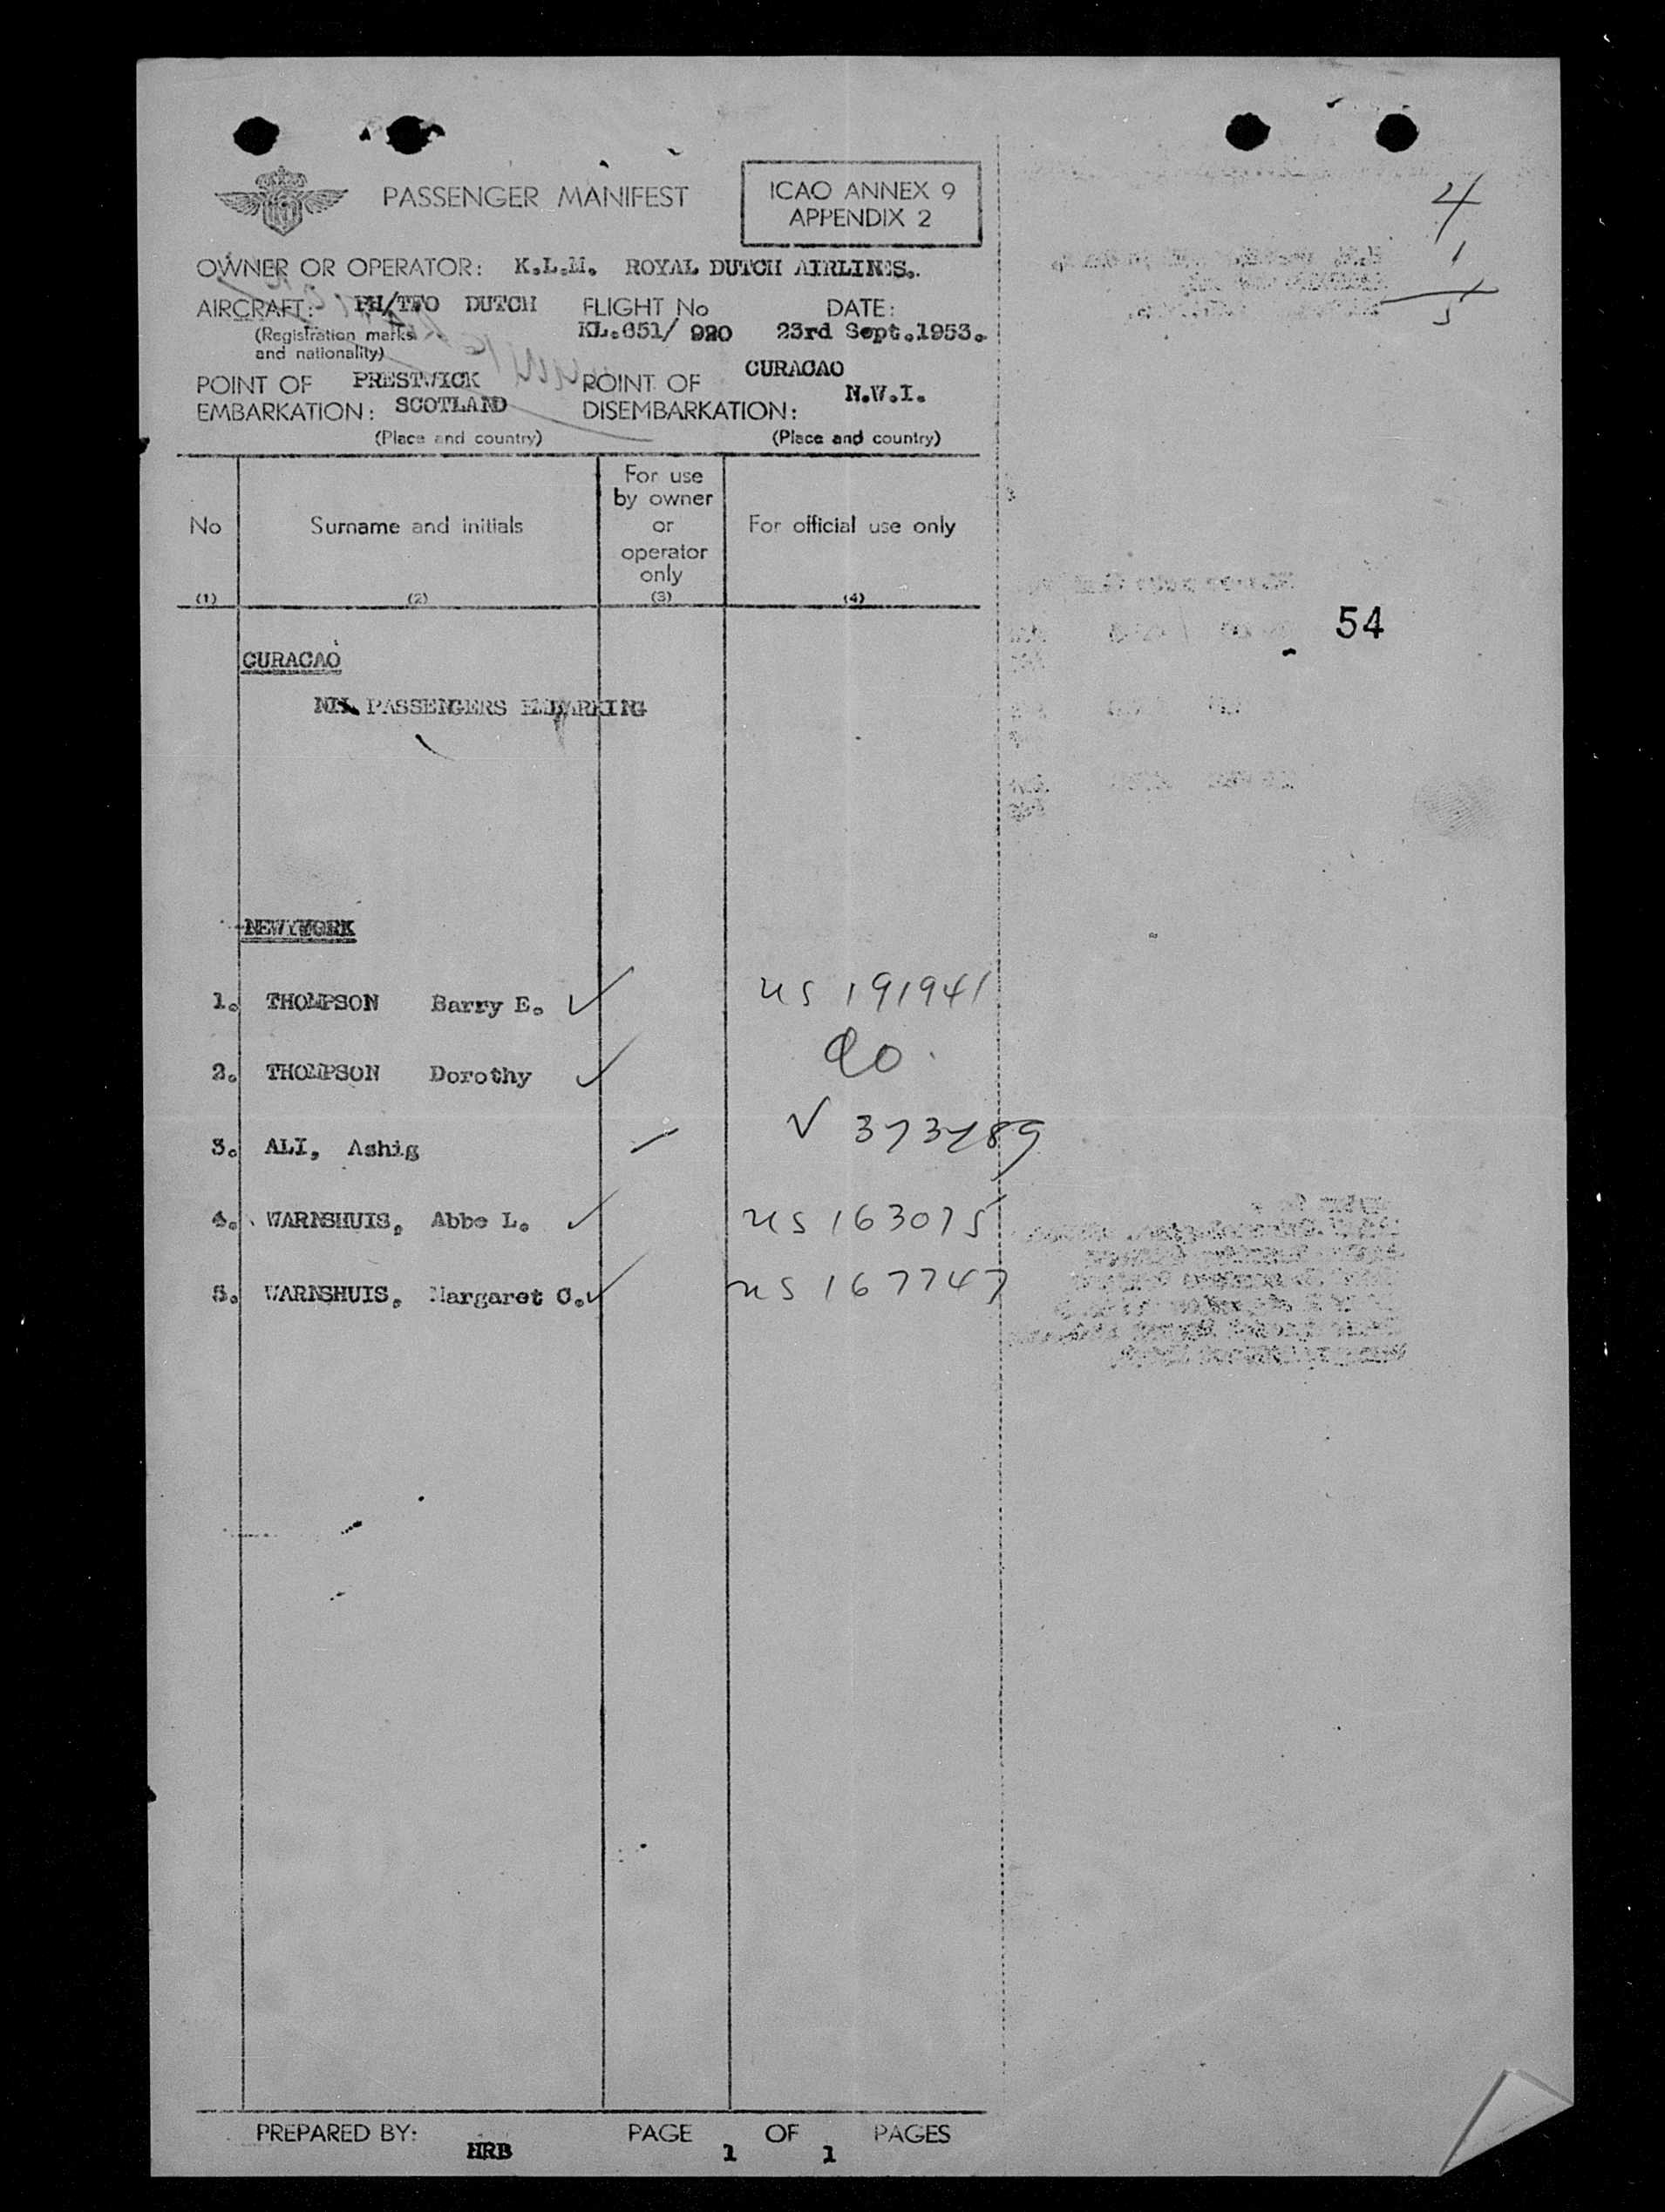 PASSENGER MANIFEST
ICAO ANNEX 9
APPENDIX 2
4
1
5
OWNER OR OPERATOR: K.L.M. ROYAL DUTCH AIRLINES.
AIRCRAFT: PH/TFO DUTCH FLIGHT No DATE:
(Registration marks and nationality) KL.651/ 920 23rd Sept.1953.
POINT OF EMBARKATION: PRESTWICK SCOTLAND
POINT OF DISEMBARKATION: CURACAO N.W.I.
(Place and country) (Place and country)
No Surname and initials For use by owner or operator only For official use only
(1) (2) (3) (4)
54
CURACAO
NIL PASSENGERS EMBARKING
NEW YORK
1. THOMPSON Barry E. ✓ US 191941
2. THOMPSON Dorothy ✓ do.
3. ALI, Ashig V 373789
4. WARNSHUIS, Abbe L. ✓ US 163075
5. WARNSHUIS, Margaret C. ✓ US 167747
PREPARED BY: HRB PAGE 1 OF 1 PAGES